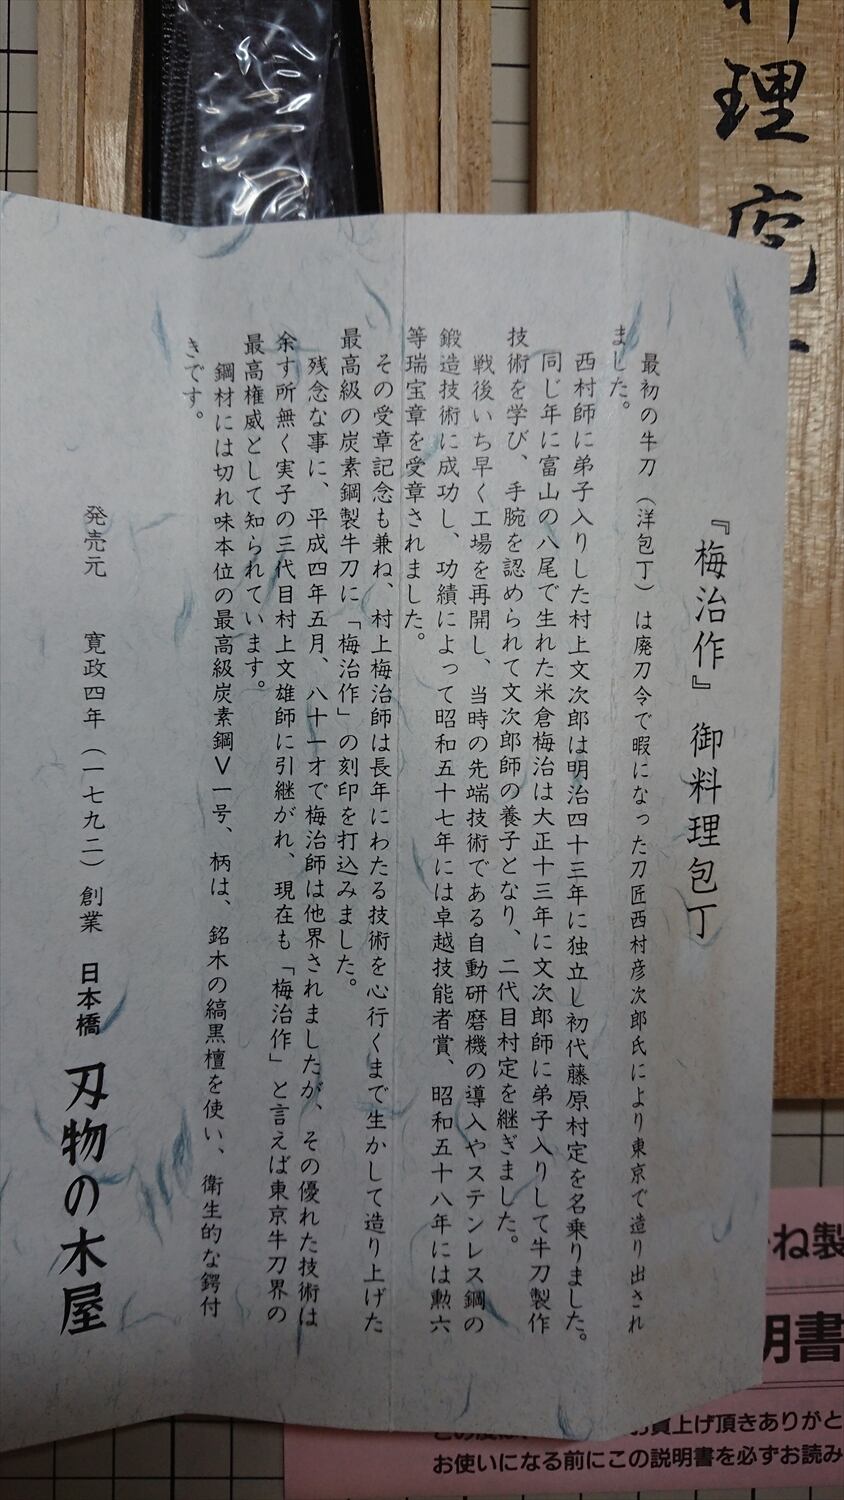 『梅治作』御料理包丁
最初の牛刀（洋包丁）は廃刀令で暇になった刀匠西村彦次郎氏により東京で造り出され
ました。
西村師に弟子入りした村上文次郎は明治四十三年に独立し初代藤原村定を名乗りました。
同じ年に富山の八尾で生れた米倉梅治は大正十三年に文次郎師に弟子入りして牛刀製作
技術を学び、手腕を認められて文次郎師の養子となり、二代目村定を継ぎました。
戦後いち早く工場を再開し、当時の先端技術である自動研磨機の導入やステンレス鋼の
鍛造技術に成功し、功績によって昭和五十七年には卓越技能者賞、昭和五十八年には勲六
等瑞宝章を受章されました。
その受章記念も兼ね、村上梅治師は長年にわたる技術を心行くまで生かして造り上げた
最高級の炭素鋼製牛刀に「梅治作」の刻印を打込みました。
残念な事に、平成四年五月、八十一才で梅治師は他界されましたが、その優れた技術は
余す所無く実子の三代目村上文雄師に引継がれ、現在も「梅治作」と言えば東京牛刀界の
最高権威として知られています。
鋼材には切れ味本位の最高級炭素鋼V一号、柄は、銘木の縞黒檀を使い、衛生的な鍔付
きです。
発売元 寛政四年（一七九二）創業 日本橋 刃物の木屋
理
ね製
明書
お買上げ頂きありがと
お使いになる前にこの説明書を必ずお読み